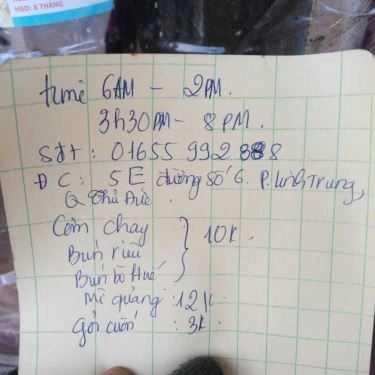 HSD: 6 THÁNG
time 6AM – 2PM.
3h30PM – 8PM.
Sđt: 01655 992 888
ĐC: 5E đường số 6. P. Linh Trung,
Q Thủ Đức.
Cơm chay
Bún riêu
Bún bò Huế
} 10k.
Mì quảng: 12k.
Gỏi cuốn : 3k.